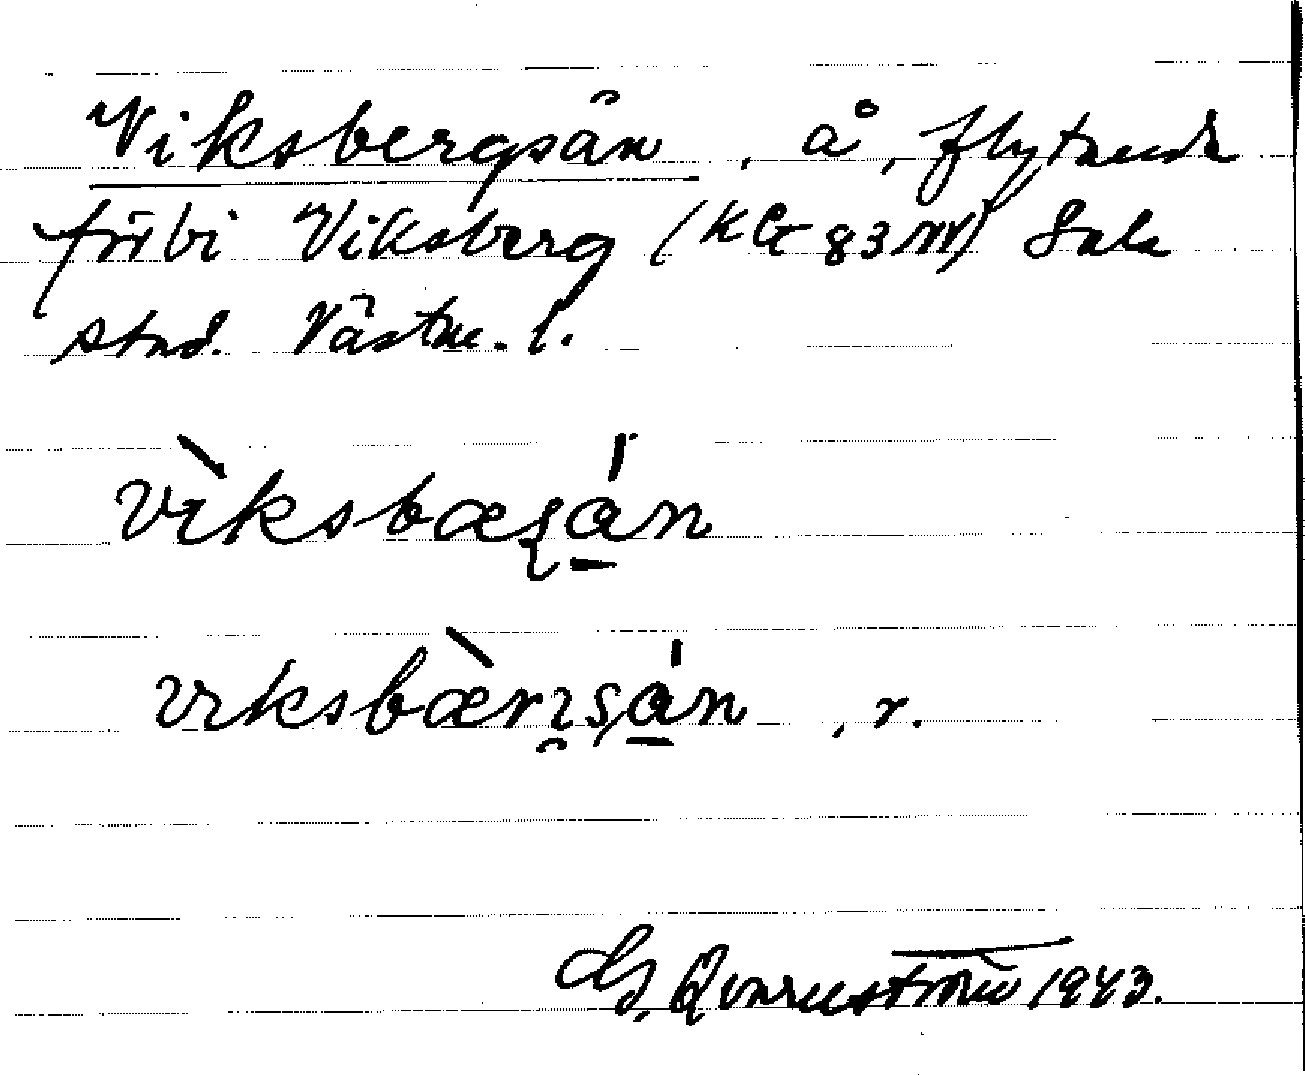 Viksbergsån, å, flytande
förbi Viksberg (KG 83 NV) Sala
stad. Västm. l.
vìksbæʂán
vɪksbæ̀rɪʂán, r.
1943.